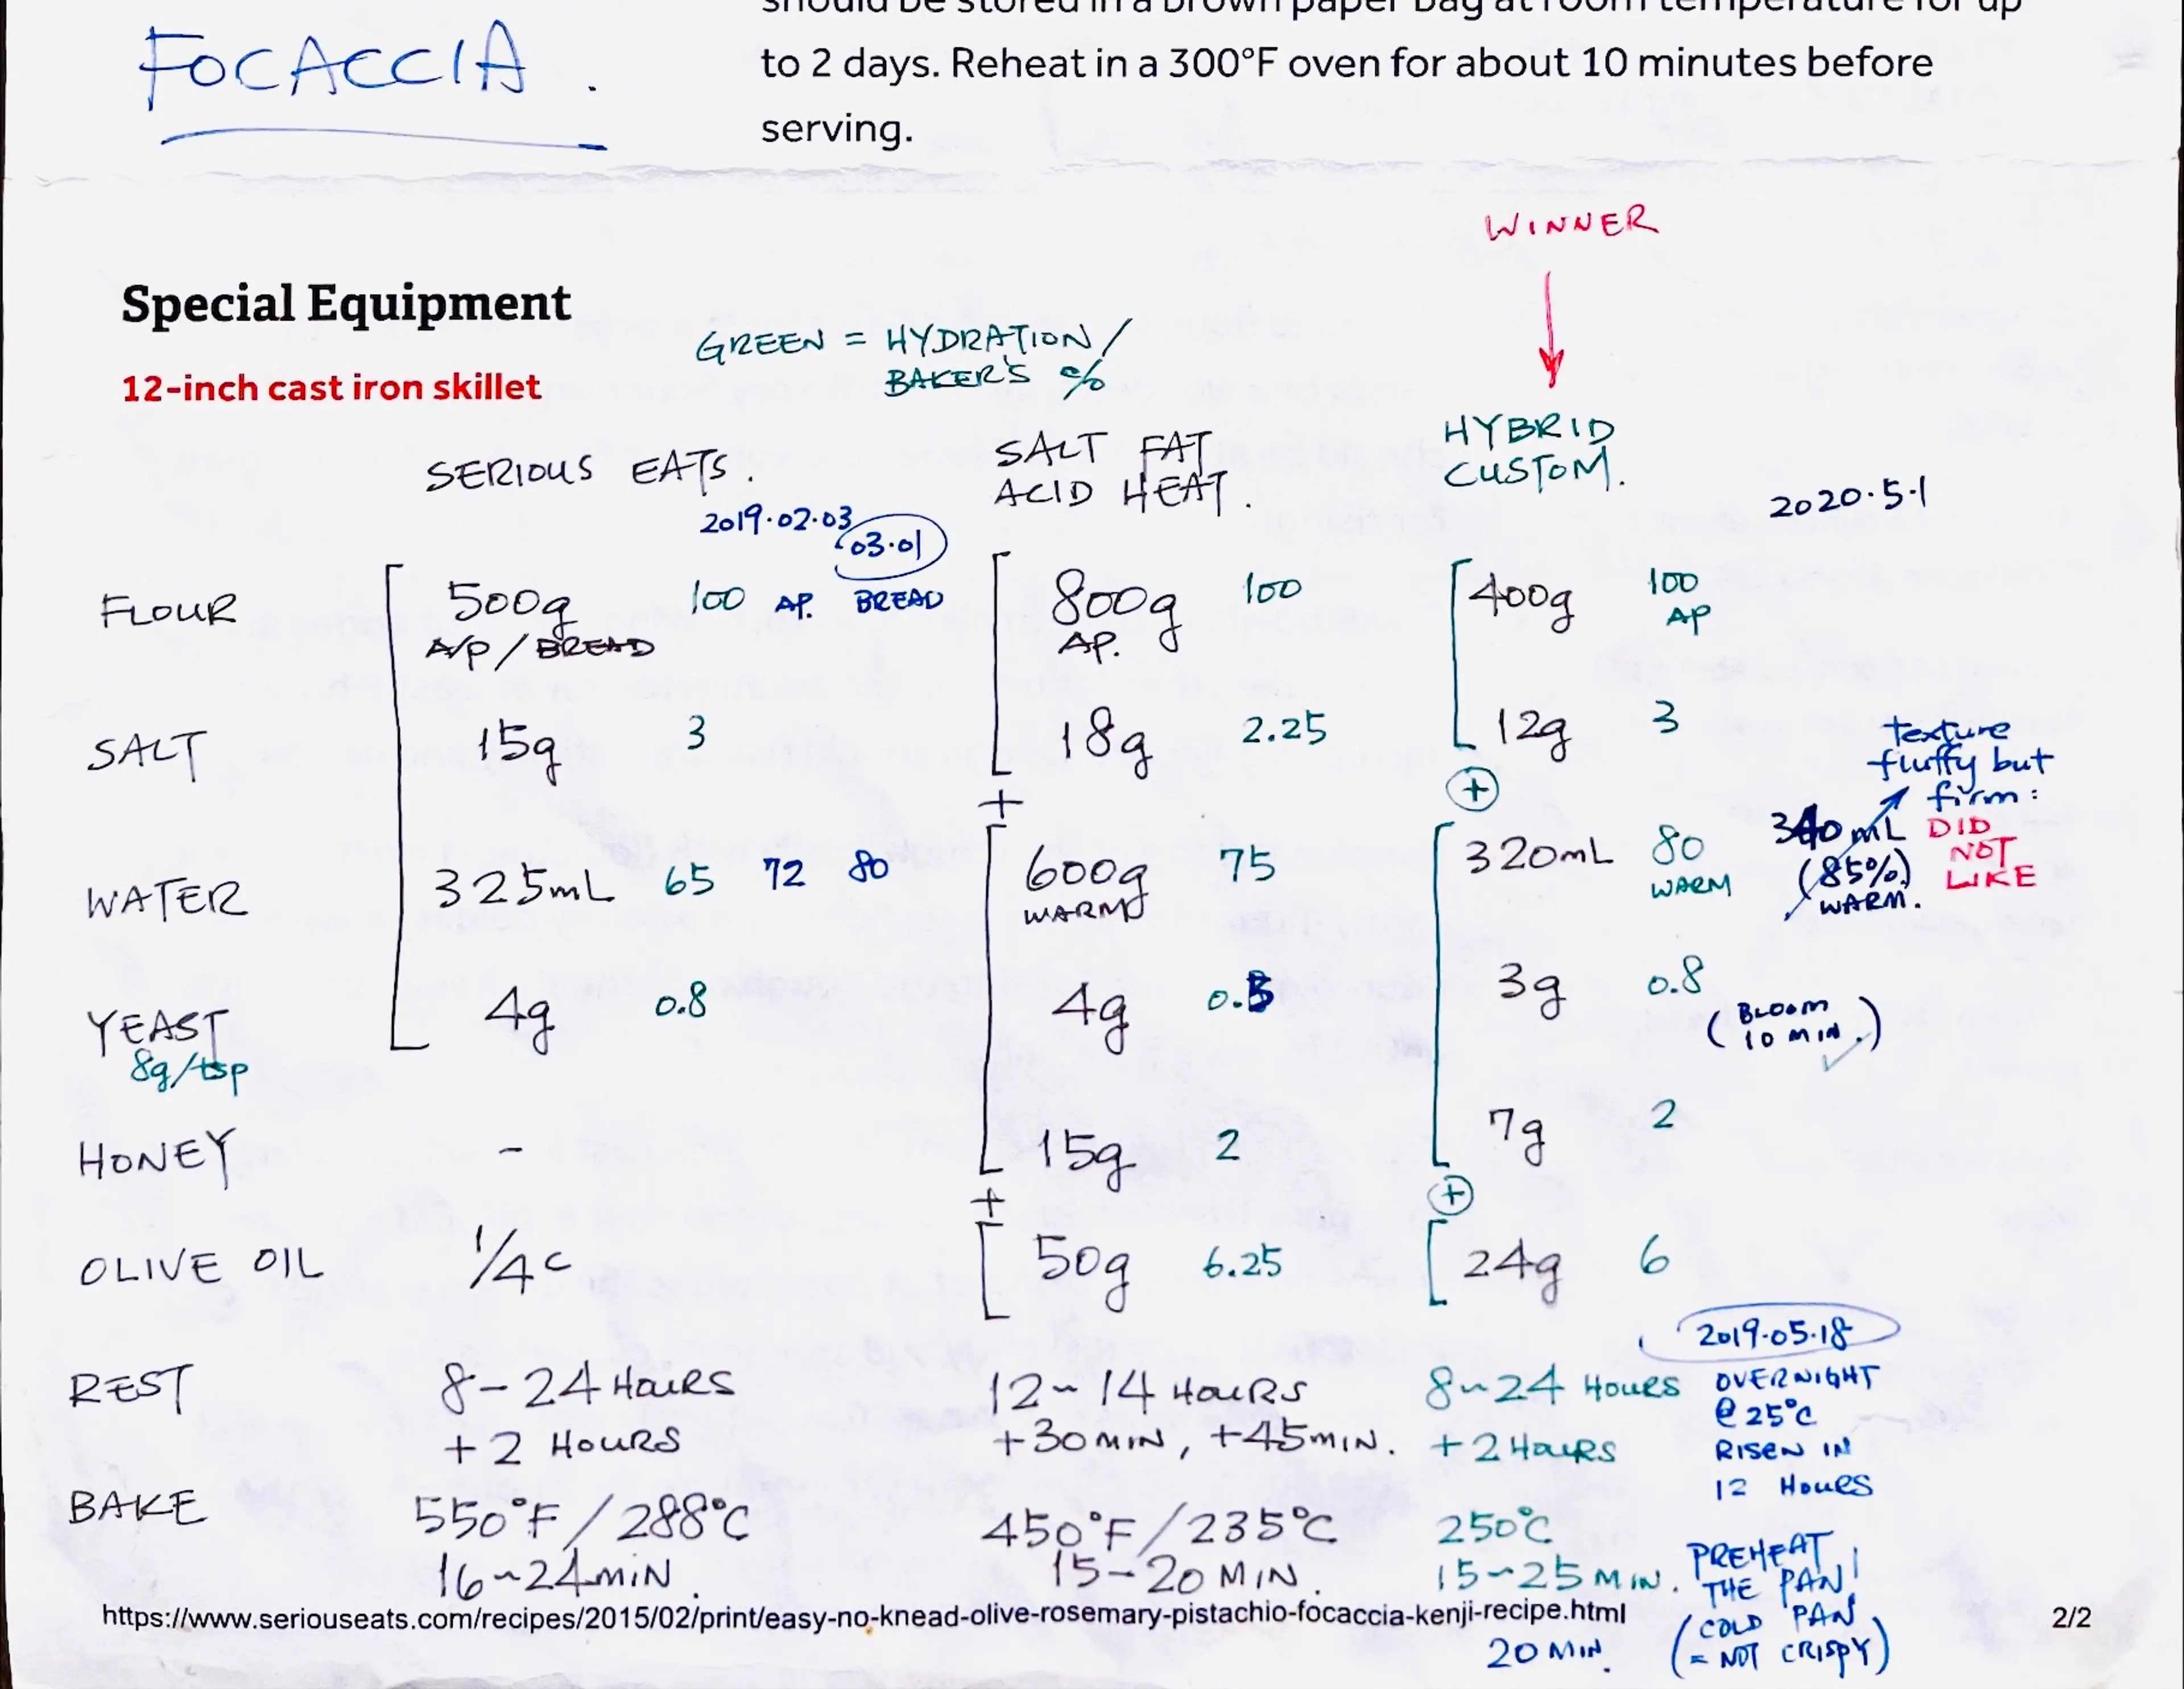 should be stored in a brown paper bag at room temperature for up
to 2 days. Reheat in a 300°F oven for about 10 minutes before
serving.
FOCACCIA.
WINNER
Special Equipment
12-inch cast iron skillet
GREEN = HYDRATION /
BAKER'S %
SERIOUS EATS.
2019.02.03
03.01
SALT FAT
ACID HEAT.
HYBRID
CUSTOM.
2020.5.1
FLOUR 500g 100 AP. BREAD 800g 100 400g 100
A/P / BREAD AP. AP
SALT 15g 3 18g 2.25 12g 3
+ +
texture
fluffy but
firm:
DID
NOT
LIKE
WATER 325mL 65 72 80 600g 75 320mL 80 340mL
WARM WARM (85%)
WARM.
YEAST 4g 0.8 4g 0.5 3g 0.8
8g/tsp
(BLOOM
10 MIN.)
HONEY - 15g 2 7g 2
+ +
OLIVE OIL 1/4 c 50g 6.25 24g 6
2019.05.18
OVERNIGHT
@ 25°C
RISEN IN
12 HOURS
REST 8-24 HOURS 12~14 HOURS 8~24 HOURS
+2 HOURS +30MIN, +45MIN. +2 HOURS
BAKE 550°F/288°C 450°F/235°C 250°C
16~24MIN. 15-20 MIN. 15~25 MIN.
PREHEAT
THE PAN!
(COLD PAN
= NOT CRISPY)
https://www.seriouseats.com/recipes/2015/02/print/easy-no-knead-olive-rosemary-pistachio-focaccia-kenji-recipe.html
2/2
20 MIN.